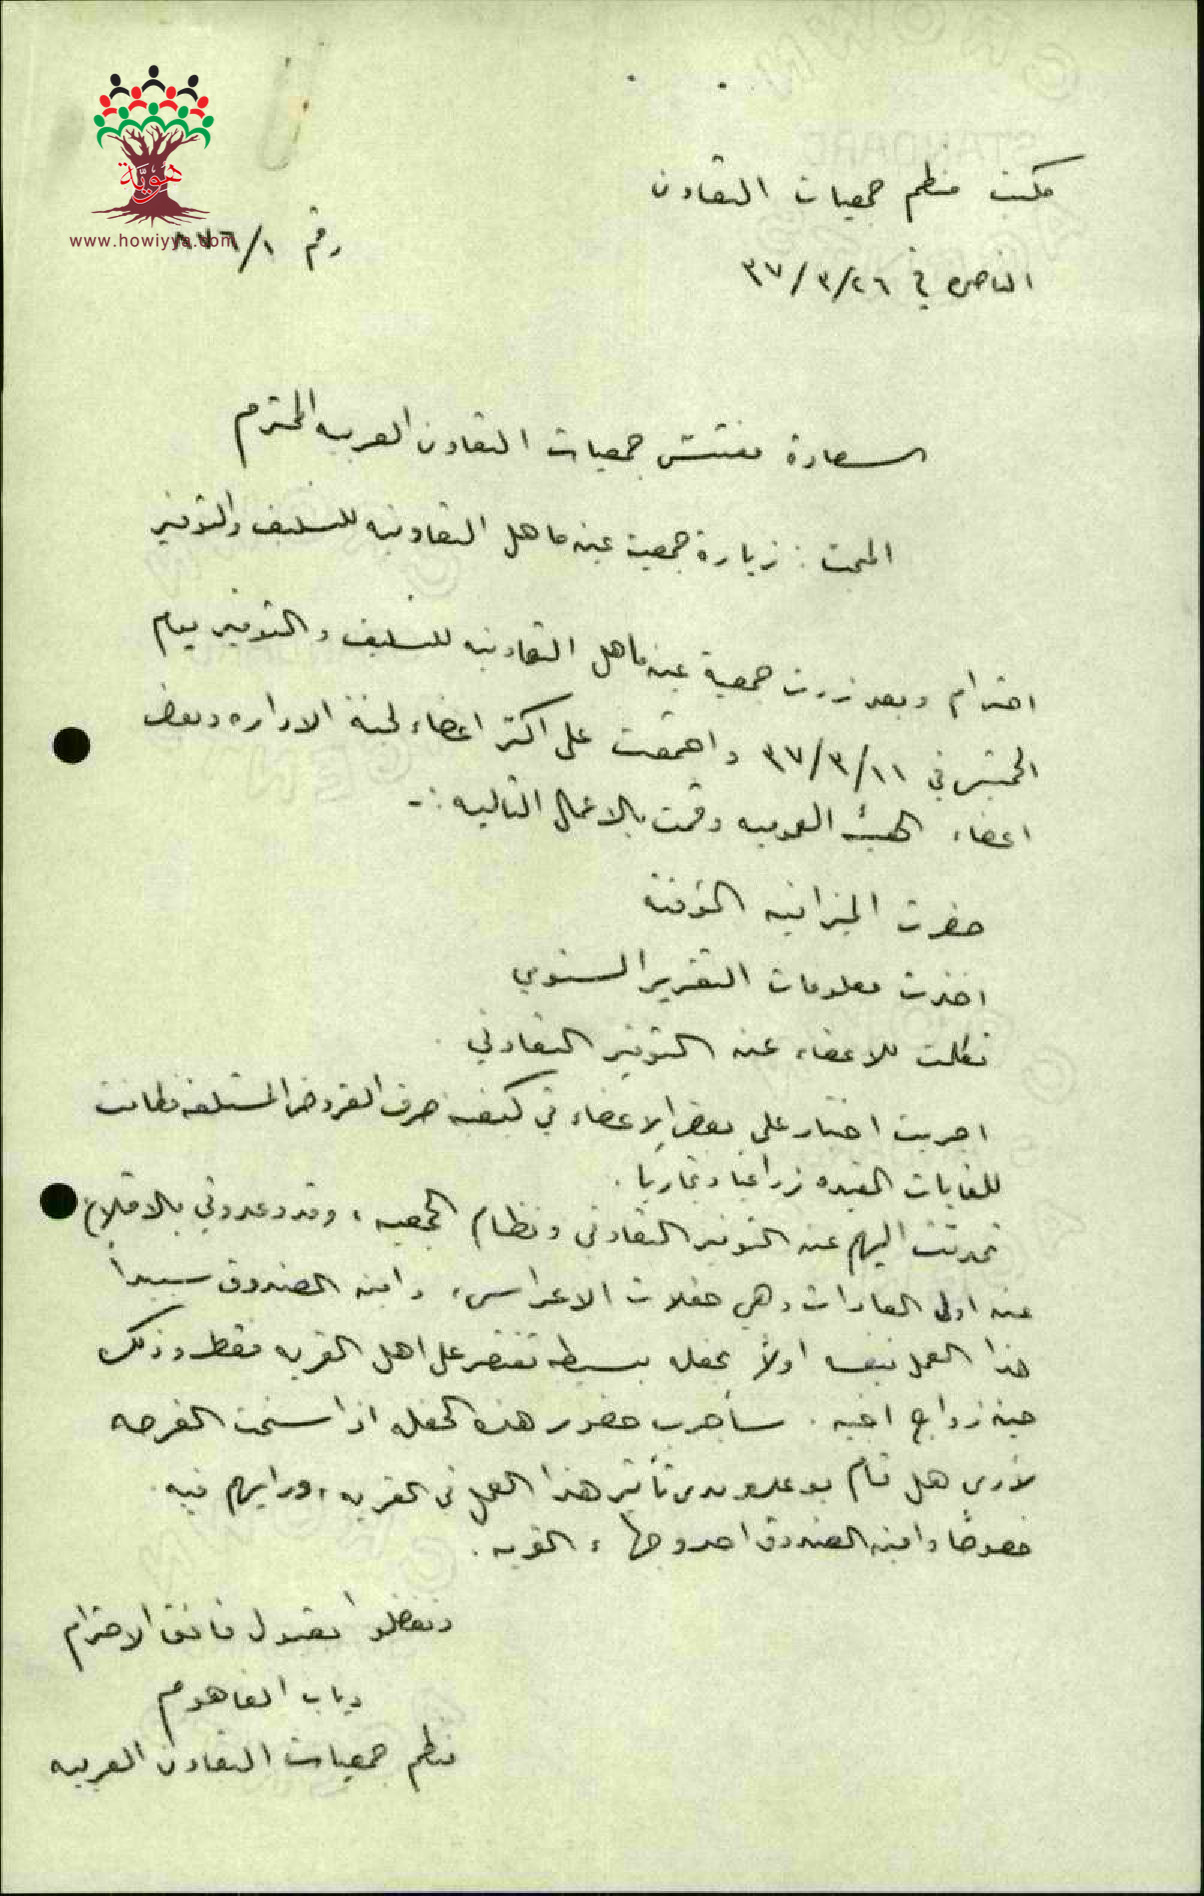 هوية
www.howiyya.com
مكتب منظم جمعيات التعاون
رقم ٨٧٦/١
الناصره في ٣٧/٣/٢٦
سعادة مفتش جمعيات التعاون العربيه المحترم
المبحث : زيارة جمعية عين ماهل التعاونيه للتسليف والتوفير
احترام وبعد زرت جمعية عين ماهل التعاونيه للتسليف والتوفير يوم
الخميس في ٣٧/٣/١١ واجتمعت على اكثر اعضاء لجنة الاداره وبعض
اعضاء الهيئه العموميه وقمت بالاعمال التاليه :-
حضرت الميزانيه المؤقته
اخذت معلومات التقرير السنوي
تكلمت للاعضاء عن التوفير التعاوني .
اجريت اختبار على بعض الاعضاء في كيفية صرف القروض المستلفه فكانت
للغايات المفيده زراعيا وتجاريا .
تحدثت اليهم عن التوفير التعاوني ونظام الجمعيه ، وقد وعدوني بالاقلاع
عن اولى العادات وهي حفلات الاعراس ، وامين الصندوق سيبدأ
هذا العمل بنفسه اولاً بحفله بسيطه تقتصر على اهل القريه فقط وذلك
حين زواج اخيه . سأجرب حضور هذه الحفله اذا سنحت الفرصه
لأرى هل قام بوعده ومدى تأثير هذا العمل في القريه ، ورأيهم فيه .
خصوصًا وامين الصندوق احد وجهاء القريه .
وتفضلوا بقبول فائق الاحترام
دياب الفاهوم
منظم جمعيات التعاون العربيه